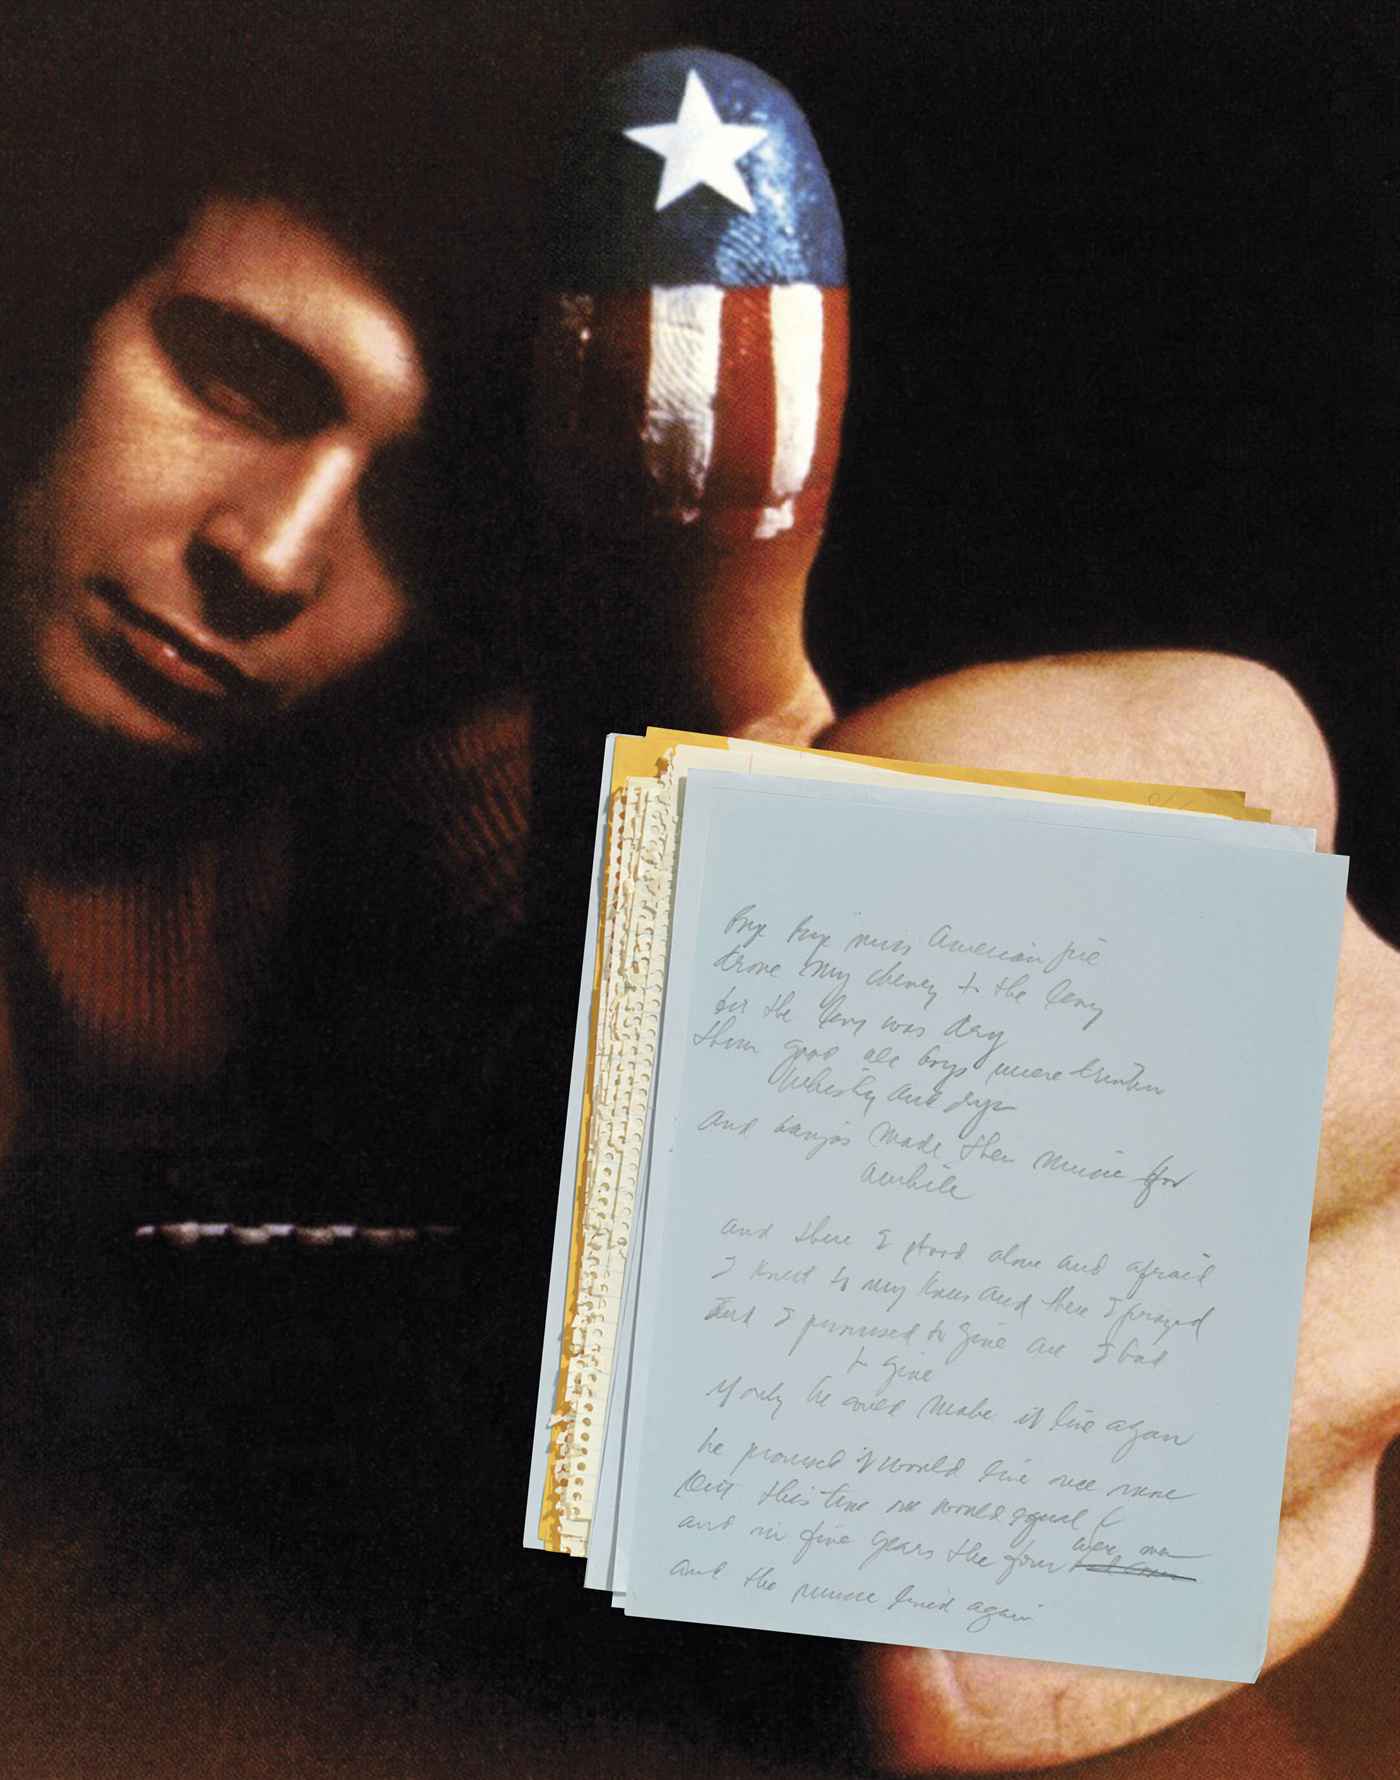 Bye bye miss American pie
drove my chevy to the levy
but the levy was dry
them good ole boys were drinkin
whisky and rye
And banjos made then music for
awhile
and there I stood alone and afraid
I knelt to my knees and there I prayed
And I promised to give all I had
to give
if only he would make it live again
he promised it would live once more
but this time one would equal 4
and in five years the four were
and the music lived again